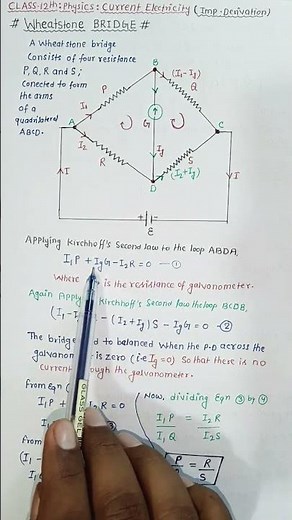 CLASS-12th: Physics: Current Electricity (Imp. Derivation)
# Wheatstone BRIDGE #
A Wheatstone bridge
Consists of four resistance
P, Q, R and S;
Conected to form
the arms
of a
quadrilateral
ABCD.
B
(I₁-Ig)
P
Q
I₁
A
G
C
I₂
Ig
R
S
D
(I₂+Ig)
I
I
+ -
ε
Applying Kirchhoff's Second law to the loop ABDA.
I₁P + IgG - I₂R = 0 — ①
Where is the resistance of galvanometer.
Again Apply Kirchhoff's Second law the loop BCDB.
(I₁-I - (I₂+Ig)S - IgG = 0 - ②
The bridge to balanced when the p.D across the
galvano is zero (i.e Ig=0) So that there is no
Current the galvanometer.
from Eqn
I₁P I₂R = 0
from
(I₁ -
Now, dividing Eqn ③ by ④
I₁P / I₁Q = I₂R / I₂S
P = R / S